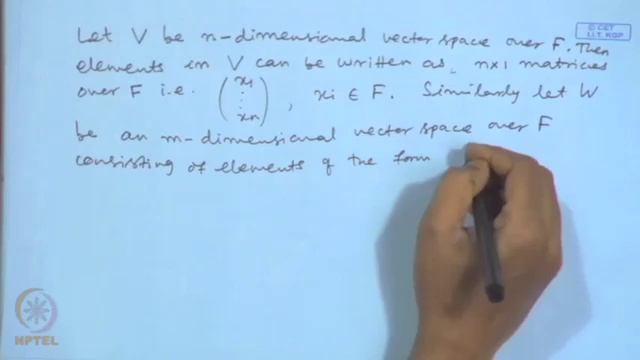 © CET
I.I.T. KGP
Let V be n-dimensional vector space over F. Then
elements in V can be written as, n×1 matrices
over F i.e. (x1 ⋮ xn), xi ∈ F. Similarly let W
be an m-dimensional vector space over F
consisting of elements of the form
NPTEL